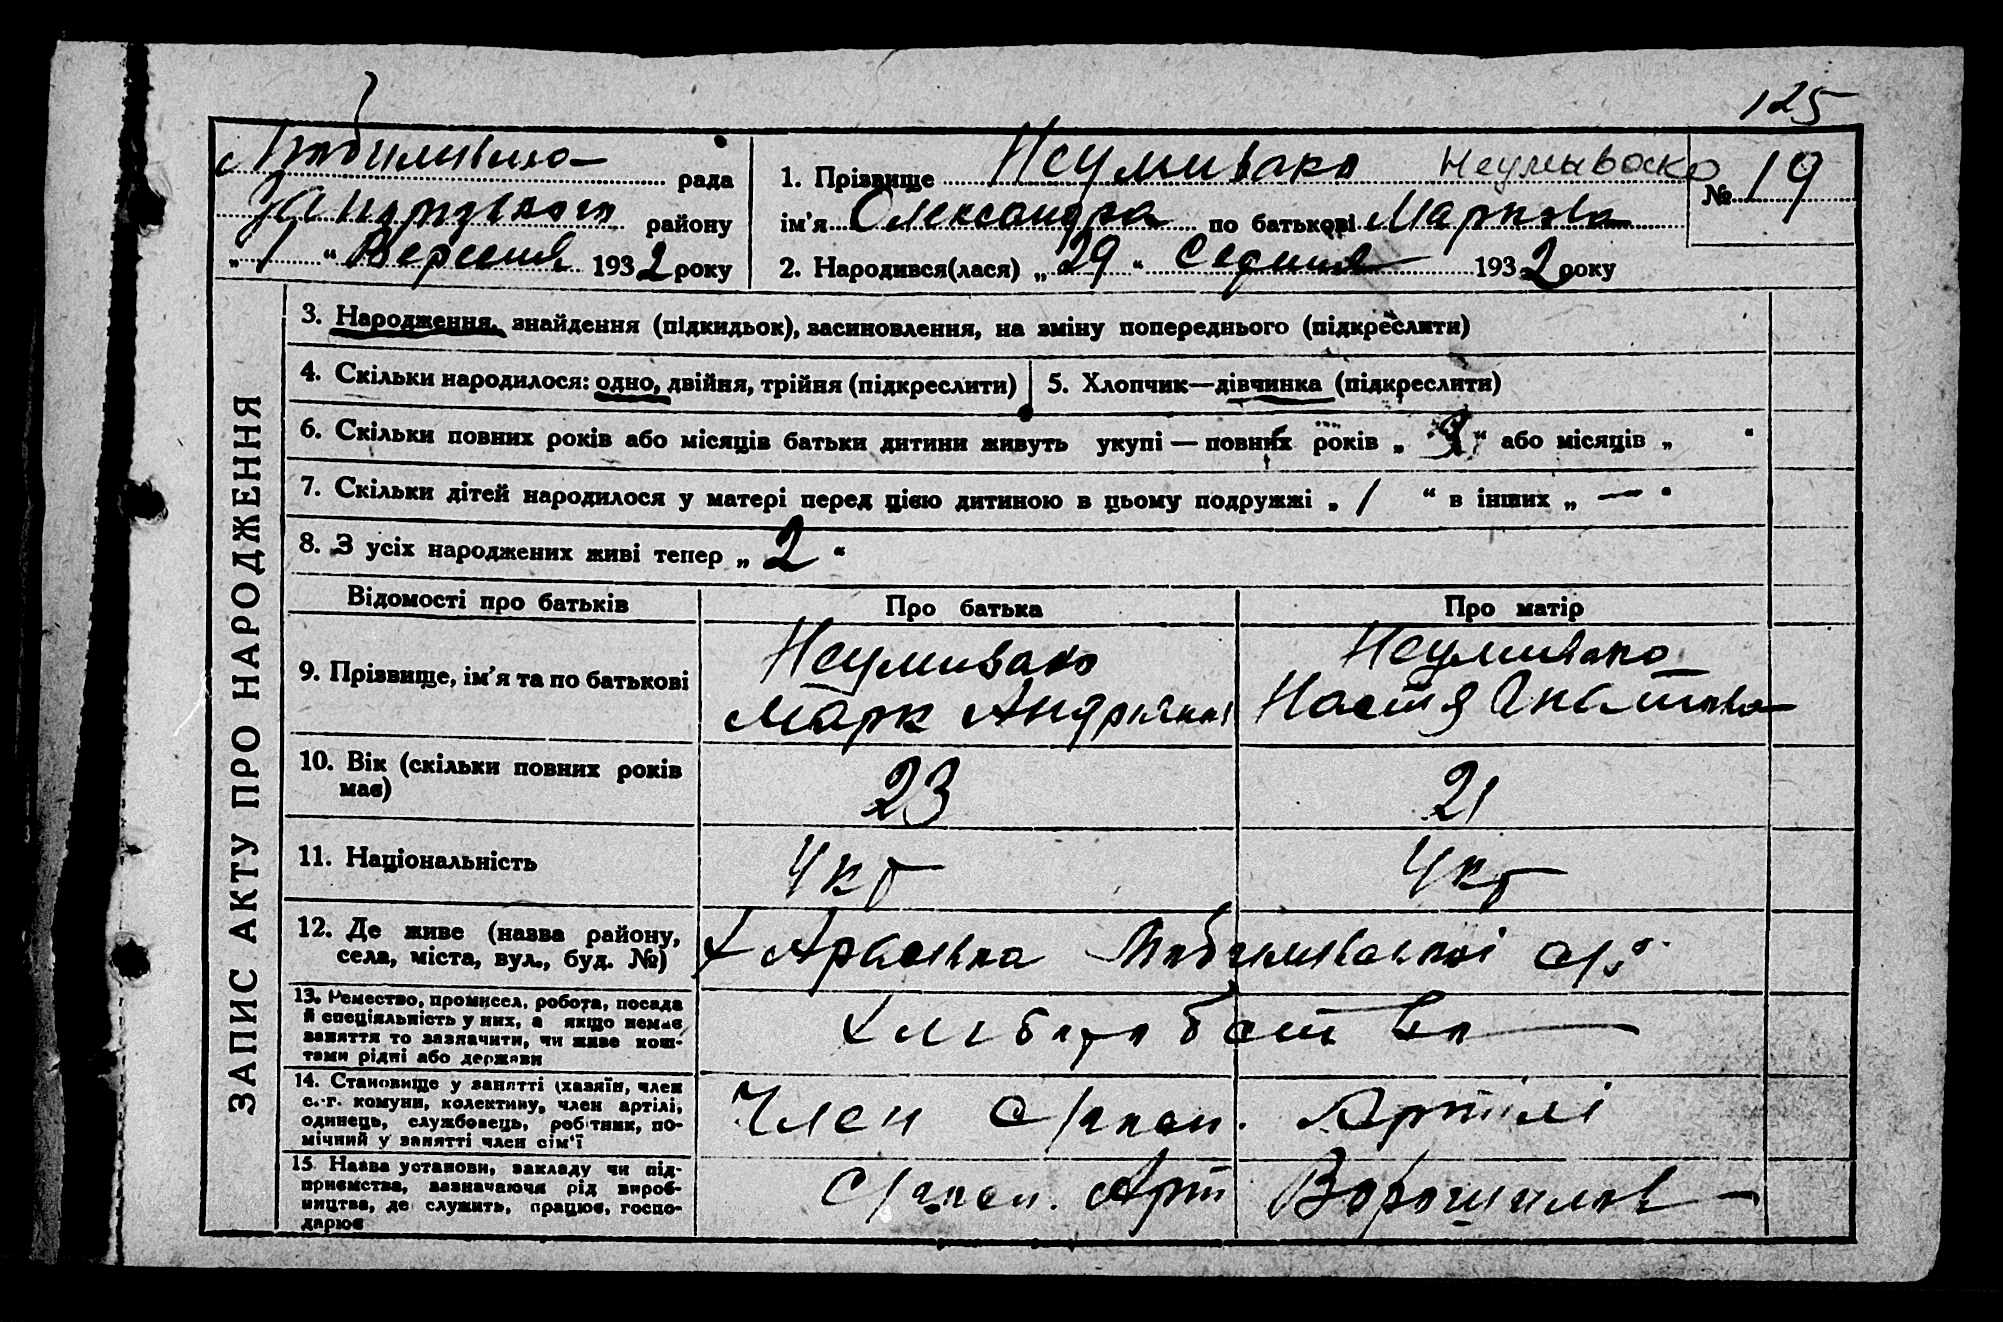 125
рада
району
„ 1 “ Вересня 1932 року
1. Прізвище Неумивако Неумывако
№ 19
ім'я Олександра по батькові Маркова
2. Народився(лася) „ 29 “ Серпня 1932 року
ЗАПИС АКТУ ПРО НАРОДЖЕННЯ
3. Народження, знайдення (підкидьок), засиновлення, на зміну попереднього (підкреслити)
4. Скільки народилося: одно, двійня, трійня (підкреслити)
5. Хлопчик—дівчинка (підкреслити)
6. Скільки повних років або місяців батьки дитини живуть укупі — повних років „ “ або місяців „ “
7. Скільки дітей народилося у матері перед цією дитиною в цьому подружжі „ 1 “ в інших „ — “
8. З усіх народжених живі тепер „ 2 “
Відомості про батьків
Про батька
Про матір
9. Прізвище, ім'я та по батькові
Неумивако
Марк
Неумивако
Настя Гнатовна
10. Вік (скільки повних років
має)
23
21
11. Національність
Укр
Укр
12. Де живе (назва району,
села, міста, вул., буд. №)
13. Ремество, промисел, робота, посада
й спеціяльність у них, а якщо немає
заняття то зазначити, чи живе кош-
тами рідні або держави
Хліборобство
14. Становище у занятті (хазяїн, член
с.-г. комуни, колективу, член артілі,
одинець, службовець, робітник, по-
мічний у занятті член сім'ї
Член Артілі
15. Назва установи, закладу чи під-
приємства, зазначаючи рід вироб-
ництва, де служить, працює, госпо-
дарює
Арт Ворошилов